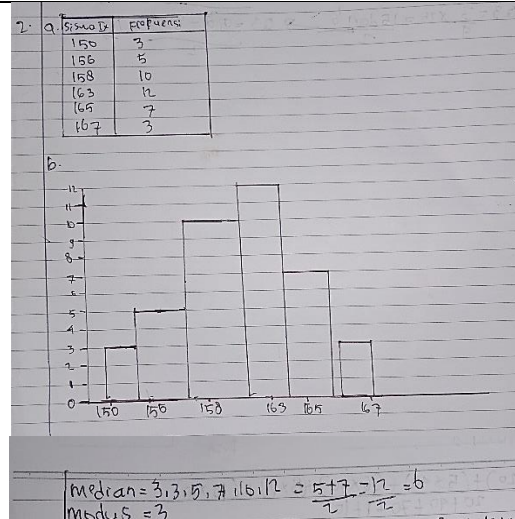 2. a. Siswa IX Frekuensi
150 3
156 5
158 10
163 12
165 7
167 3
b.
12
11
10
9
8
7
6
5
4
3
2
1
0
150 156 158 163 165 167
median = 3,3,5,7,10,12 = 5+7/2 = 12/2 = 6
modus = 3